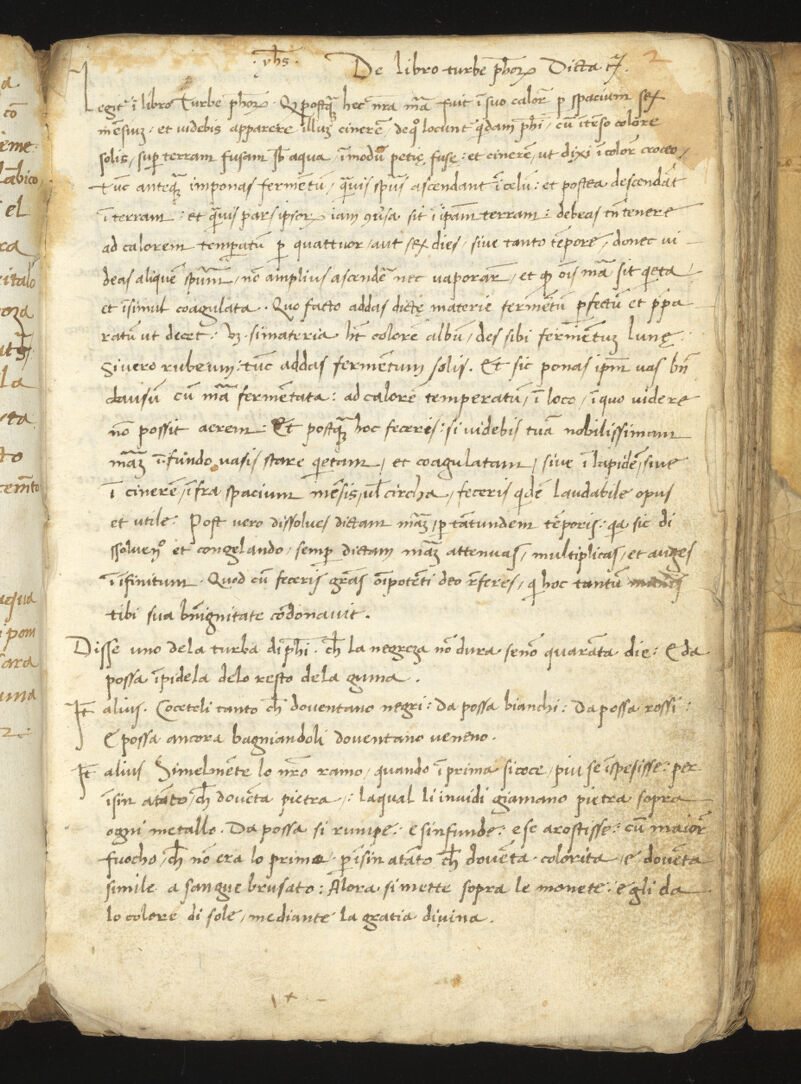 .yhs. De libro turbe ph̄oꝝ Dicta 2
Legit̄ ī libro Turbe ph̄oꝝ. Qd̄ postq̄ȝ hec nr̄a mā fuit ī suo calor̄ p spacium sex
mēsiuȝ. et videbis apparere illuȝ cinerē, de qº locunt̄ qdam ph̄i, cū itēso colore
solis, sup terram fusam sb̄ aqua, ī modū petię fusę. et cinerē, ut dixi ī color̄ croceo,
tūc anteq̄ȝ imponas fermētū, q̄uis spūs ascendant ī celū. et postea descendāt
ī terram. et q̄uis pars ipsoꝝ iam 9uſa sit ī ipam terram: debeas tn̄ tenere
ad calorem temperatū p quattuor, aut sex dies, siue tanto tēpore, donec vi
deas aliquē spūm, nō amplius ascendē nec vaporar̄, et qd̄ oīs mā sit q̄eta
et īsimul coagulata. Quo facto addas dictę materie fermētū pfectū et ppa
ratū ut decet. vȝ. si materia ht̄ colorē albū, des sibi fermētuȝ lunę.
Si vero rubeum: tūc addas fermētum solis. Et sic ponas ipm̄ vas bn̄
clausū cū mā fermētata: ad calorē temperatū, ī loco, ī quo videre
nō possit aerem. Et postq̄ȝ hoc feceris: si videbis tuā nobilissimam
māȝ ī fundo vasis stare q̄etam, et coagulatam, siue ī lapidē, siue
ī cinerē, īfra spacium mēsis, vl̄ circha, feceris qidē laudabile opus
et utile. Post vero dissolues dictam māȝ, p tātundem tēporis. qa sic di
ssoluenº et congelando, semp dictam māȝ attenuas, multiplicas, et auges
ī īfinitum. Quod cū feceris grās oīpotēti deo rēferes, q hoc tantū
tibi sua bn̄ignitate cōdonauit.
Disse uno dela turba di ph̄i. ch̄ la negreza nō dura senō quarāta die: E da
possa īpidela delo resto dela guma.
Jt̄ alius. Cocetoli tanto ch̄ douentano negri: da possa bianchi: Da possa rossi:
E possa ancora bagniandoli douentano veneno.
Jt̄ alius Simelmēte lo nr̄o ramo, quando īprima si coce, piu se īspesisse: per
īsin atāto, ch̄ douēta pietra,: laqual li inuidi giamano pietra sopra
ogni metallo. Da possa si rumpe: e sinfunde: e se arostisse: cū maior̄
fuocho, ch̄ nō era lo primo. p īsin atanto ch̄ douēta colorita, e douēta
simile a sangue brusato: Alora si mette sopra le monete: e gli da
lo colore di sole, mediante la gratia diuina.